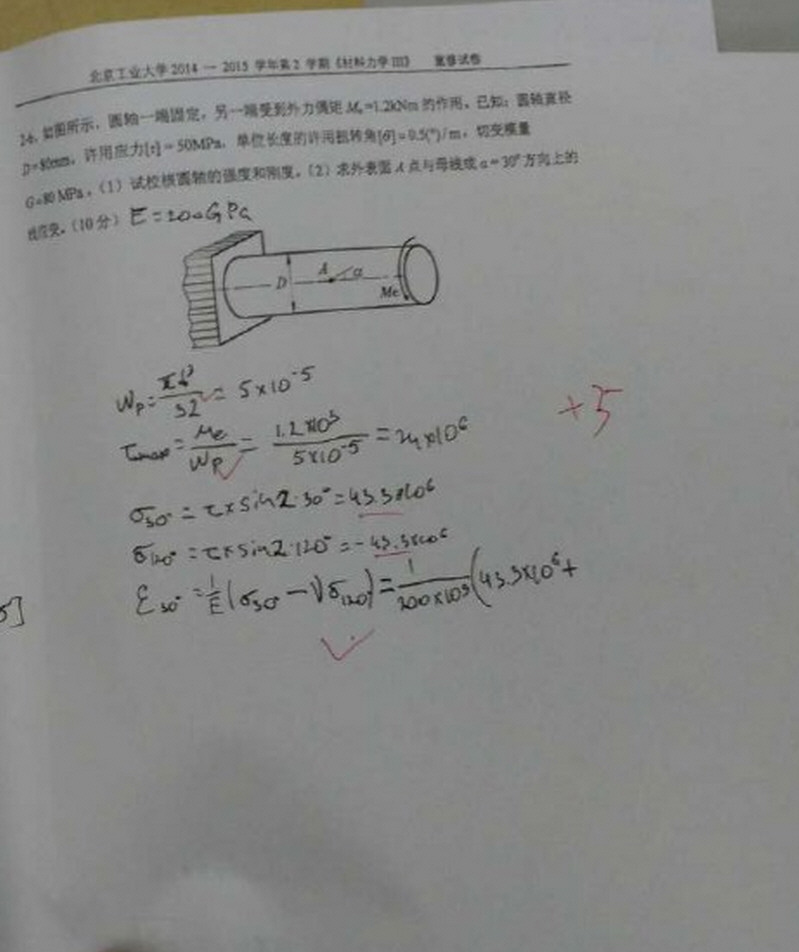 北京工业大学 2014 — 2015 学年第 2 学期《材料力学 III》 重修试卷
如图所示，圆轴一端固定，另一端受到外力偶矩 Mₑ=1.2kNm 的作用。已知：圆轴直径
D=80mm，许用应力[τ]=50MPa，单位长度的许用扭转角[θ]=0.5(°)/m，切变模量
G=80 MPa。(1) 试校核圆轴的强度和刚度。(2) 求外表面 A 点与母线成 α=30° 方向上的
线应变。(10 分) E=200GPa
D A α
Me
Wp= = 5×10⁻⁵
32
τmax = Me/Wp = 1.2×10³/5×10⁻⁵ = 24×10⁶
+5
σ30° = τ×sin2·30° = 43.3×10⁶
σ120° = τ×sin2·120° = -43.3×10⁶
ε30° = 1/E (σ30° - νσ120°) = 1/200×10⁹ (43.3×10⁶+
5]